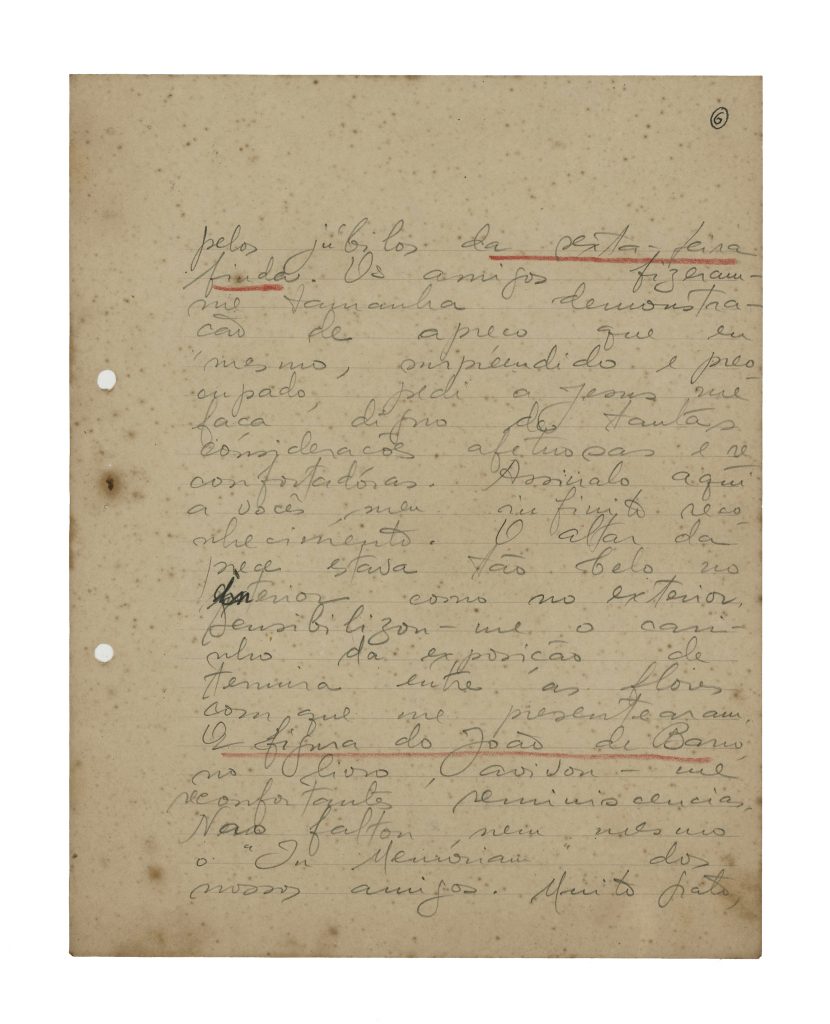 6
pelos júbilos da sexta-feira
finda. Os amigos fizeram-
me tamanha demonstra-
ção de apreço que eu
mesmo, surpreendido e preo-
cupado, pedi a Jesus me
faça digno de tantas
considerações afetuosas e re
confortadôras. Assinalo aqui
a vocês, meu infinito reco-
nhecimento. O altar da
prece estava tão belo no
interior como no exterior.
Sensibilizou-me o cari-
nho da exposição de
ternura entre as flores
com que me presentearam.
A figura do João de Barro,
no livro, avivou-me
reconfortantes reminiscencias.
Não faltou nem mesmo
o "In Memóriam" dos
nossos amigos. Muito grato,